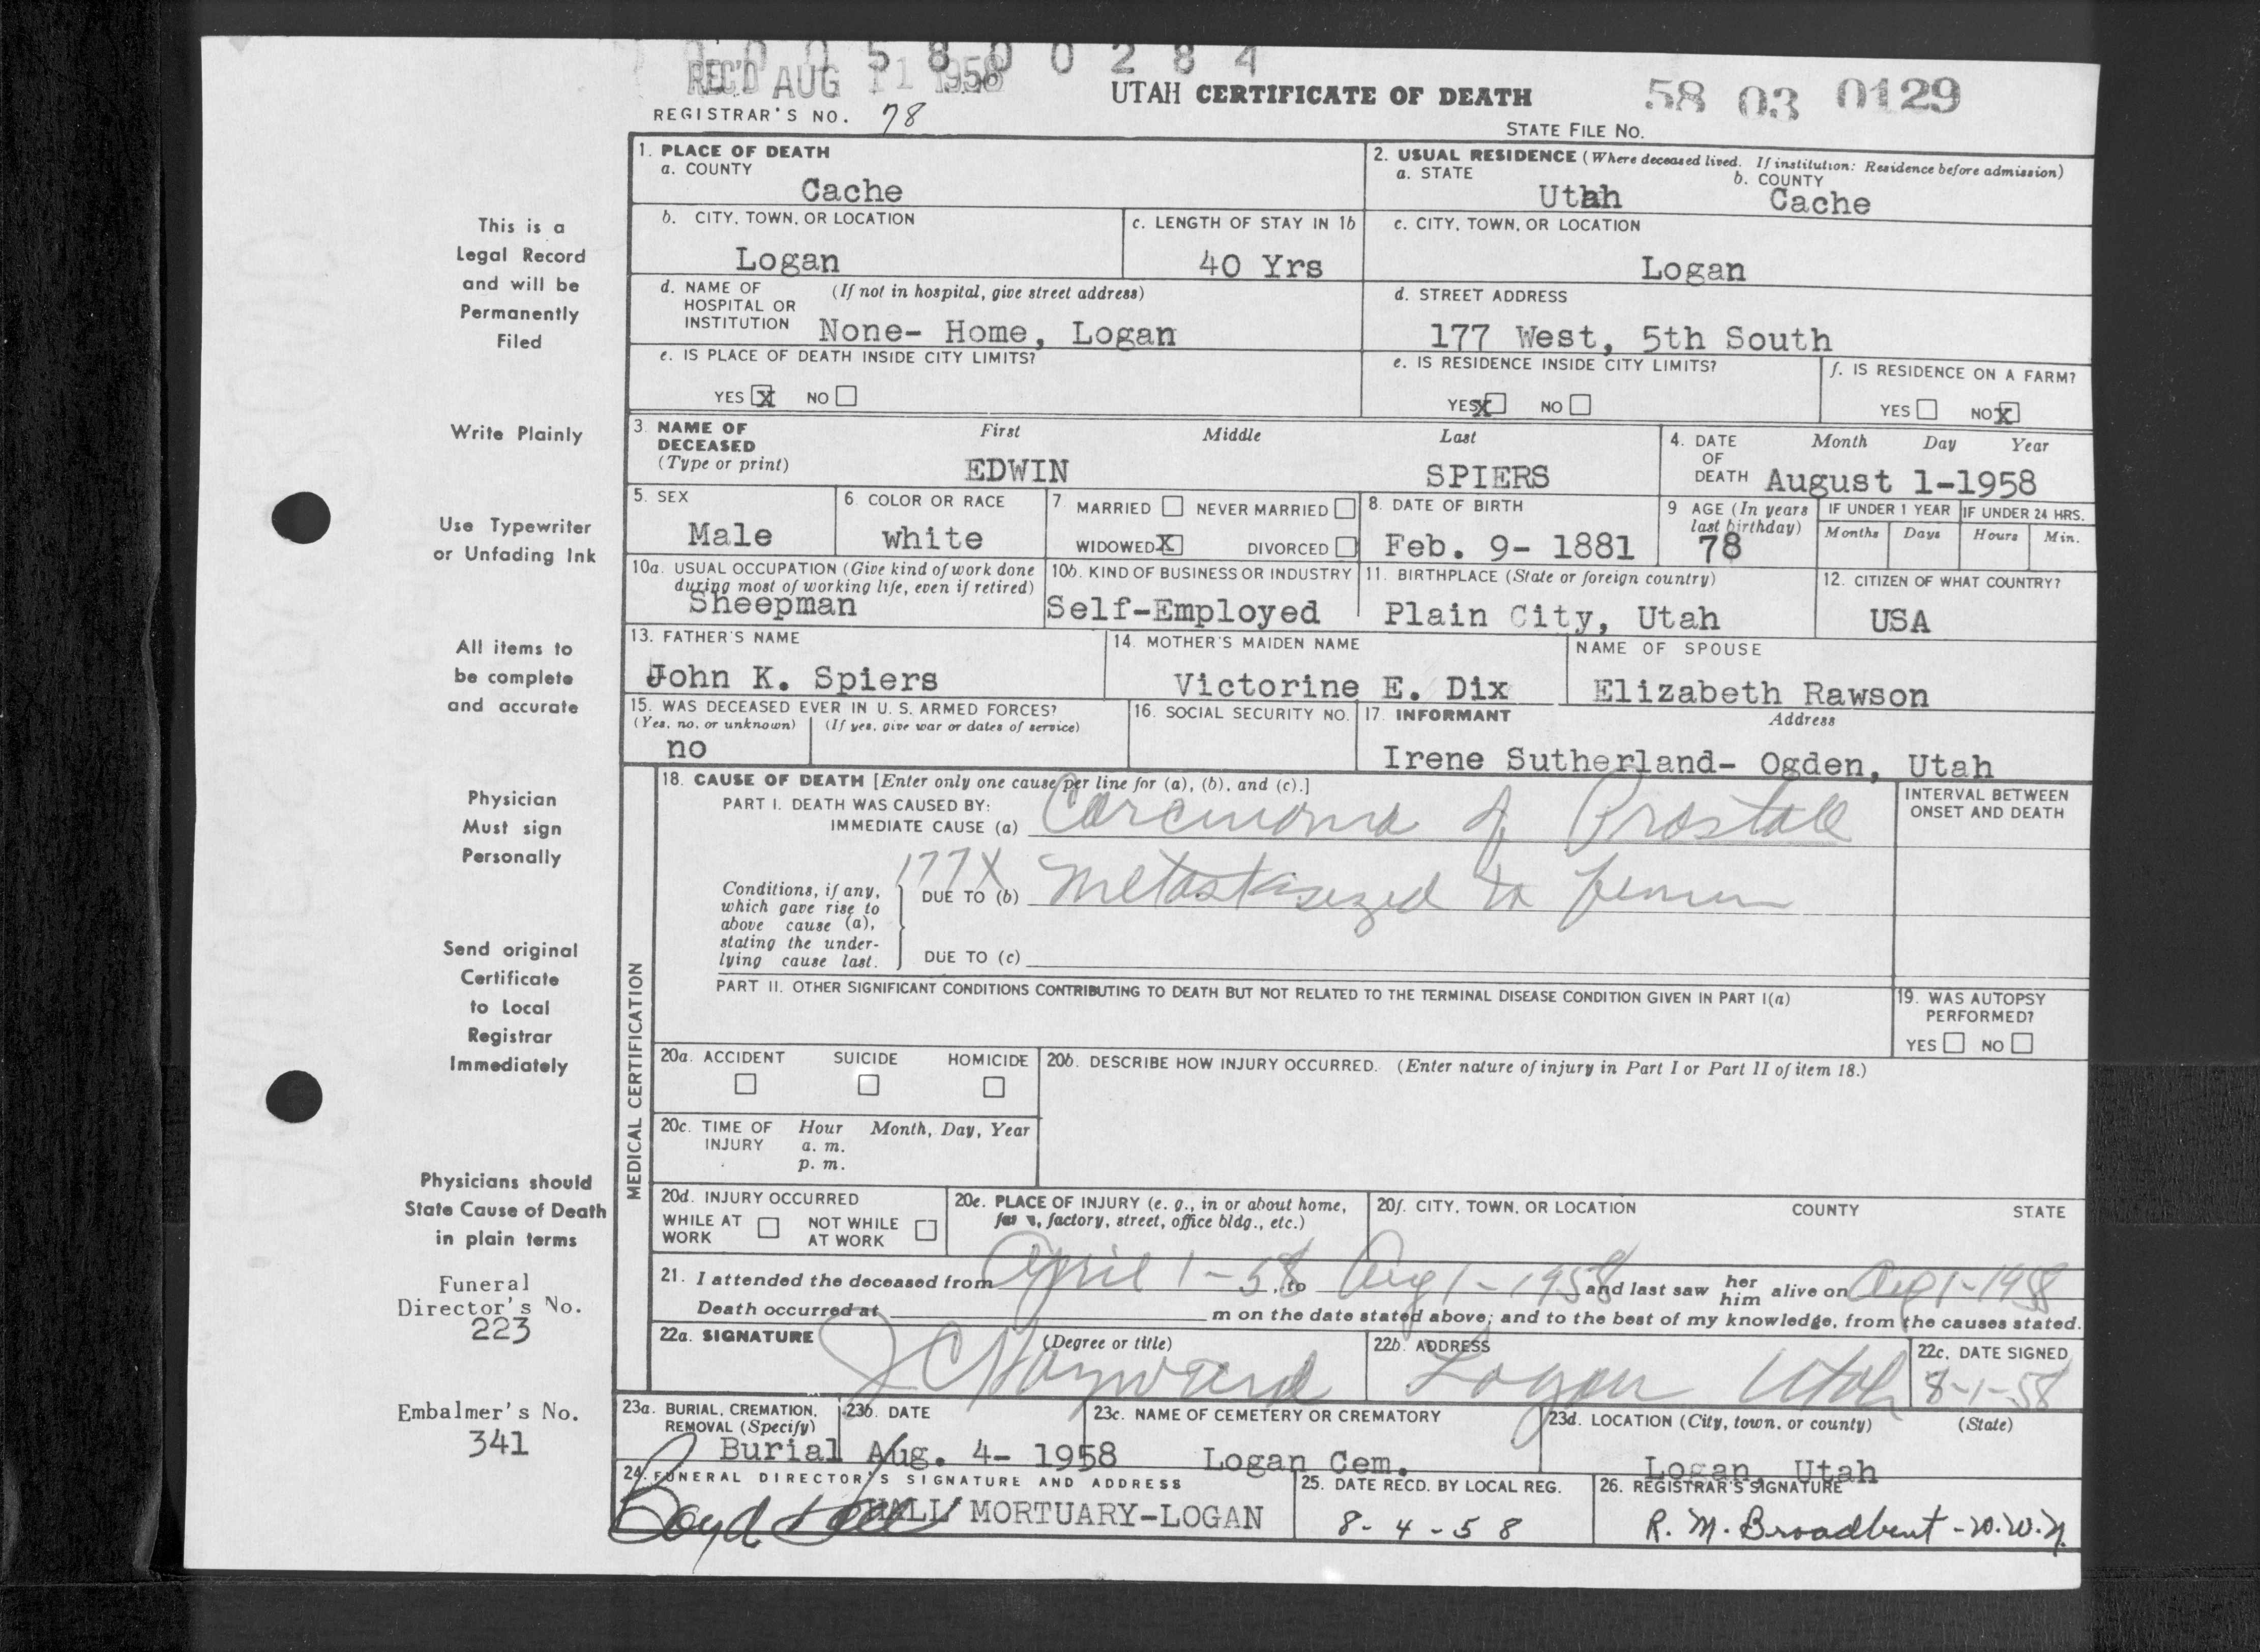 0 0 5 8 0 0 2 8 4
REC'D AUG 11 1958
UTAH CERTIFICATE OF DEATH
58 03 0129
REGISTRAR'S NO. 78
STATE FILE NO.
This is a
Legal Record
and will be
Permanently
Filed
Write Plainly
Use Typewriter
or Unfading Ink
All items to
be complete
and accurate
Physician
Must sign
Personally
Send original
Certificate
to Local
Registrar
Immediately
Physicians should
State Cause of Death
in plain terms
Funeral
Director's No.
223
Embalmer's No.
341
1. PLACE OF DEATH
a. COUNTY
Cache
2. USUAL RESIDENCE (Where deceased lived. If institution: Residence before admission)
a. STATE
Utah
b. COUNTY
Cache
b. CITY, TOWN, OR LOCATION
Logan
c. LENGTH OF STAY IN 1b
40 Yrs
c. CITY, TOWN, OR LOCATION
Logan
d. NAME OF (If not in hospital, give street address)
HOSPITAL OR
INSTITUTION None- Home, Logan
d. STREET ADDRESS
177 West, 5th South
e. IS PLACE OF DEATH INSIDE CITY LIMITS?
YES X NO
e. IS RESIDENCE INSIDE CITY LIMITS?
YES X NO
f. IS RESIDENCE ON A FARM?
YES NO X
3. NAME OF DECEASED
(Type or print)
First Middle Last
EDWIN SPIERS
4. DATE OF DEATH
Month Day Year
August 1-1958
5. SEX
Male
6. COLOR OR RACE
white
7. MARRIED NEVER MARRIED
WIDOWED X DIVORCED
8. DATE OF BIRTH
Feb. 9- 1881
9 AGE (In years
last birthday)
78
IF UNDER 1 YEAR IF UNDER 24 HRS.
Months Days Hours Min.
10a. USUAL OCCUPATION (Give kind of work done
during most of working life, even if retired)
Sheepman
10b. KIND OF BUSINESS OR INDUSTRY
Self-Employed
11. BIRTHPLACE (State or foreign country)
Plain City, Utah
12. CITIZEN OF WHAT COUNTRY?
USA
13. FATHER'S NAME
John K. Spiers
14. MOTHER'S MAIDEN NAME
Victorine E. Dix
NAME OF SPOUSE
Elizabeth Rawson
15. WAS DECEASED EVER IN U. S. ARMED FORCES?
(Yes, no, or unknown) (If yes, give war or dates of service)
no
16. SOCIAL SECURITY NO.
17. INFORMANT Address
Irene Sutherland- Ogden, Utah
MEDICAL CERTIFICATION
18. CAUSE OF DEATH [Enter only one cause per line for (a), (b), and (c).]
PART I. DEATH WAS CAUSED BY:
IMMEDIATE CAUSE (a) Carcinoma of Prostate
INTERVAL BETWEEN
ONSET AND DEATH
177X
Conditions, if any,
which gave rise to
above cause (a),
stating the under-
lying cause last.
DUE TO (b) Metastasized to femur
DUE TO (c)
PART II. OTHER SIGNIFICANT CONDITIONS CONTRIBUTING TO DEATH BUT NOT RELATED TO THE TERMINAL DISEASE CONDITION GIVEN IN PART I(a)
19. WAS AUTOPSY
PERFORMED?
YES NO
20a. ACCIDENT SUICIDE HOMICIDE
20b. DESCRIBE HOW INJURY OCCURRED. (Enter nature of injury in Part I or Part II of item 18.)
20c. TIME OF INJURY
Hour Month, Day, Year
a. m.
p. m.
20d. INJURY OCCURRED
WHILE AT WORK NOT WHILE AT WORK
20e. PLACE OF INJURY (e. g., in or about home,
factory, street, office bldg., etc.)
20f. CITY, TOWN, OR LOCATION COUNTY STATE
21. I attended the deceased from April 1-58, to Aug 1-1958 and last saw her him alive on Aug 1-1958
Death occurred at m on the date stated above; and to the best of my knowledge, from the causes stated.
22a. SIGNATURE (Degree or title)
J C Hayward
22b. ADDRESS
Logan Utah
22c. DATE SIGNED
8-1-58
23a. BURIAL, CREMATION,
REMOVAL (Specify)
Burial
23b. DATE
Aug. 4- 1958
23c. NAME OF CEMETERY OR CREMATORY
Logan Cem.
23d. LOCATION (City, town, or county) (State)
Logan, Utah
24. FUNERAL DIRECTOR'S SIGNATURE AND ADDRESS
Boyd Hall HALL MORTUARY-LOGAN
25. DATE RECD. BY LOCAL REG.
8-4-58
26. REGISTRAR'S SIGNATURE
R. M. Broadbent - W.W.N.